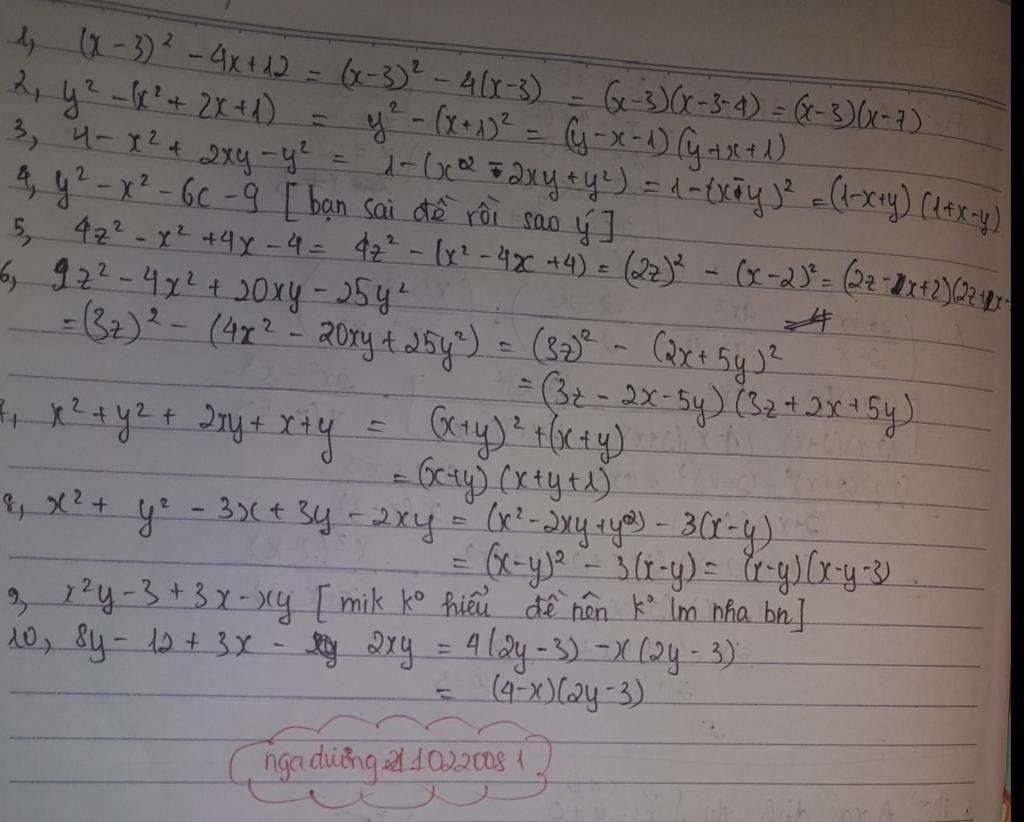 1, (x-3)² - 4x+12 = (x-3)² - 4(x-3) = (x-3)(x-3-4) = (x-3)(x-7)
2, y² - (x² + 2x+1) = y² - (x+1)² = (y-x-1)(y+x+1)
3, 4 - x² + 2xy - y² = 1-(x² - 2xy+y²) = 1-(x-y)² = (1-x+y)(1+x-y)
4, y² - x² - 6c - 9 [bạn sai đề rồi sao ý]
5, 4z² - x² + 4x - 4 = 4z² - (x² - 4x + 4) = (2z)² - (x-2)² = (2z-x+2)(2z+x-
6, 9z² - 4x² + 20xy - 25y²
= (3z)² - (4x² - 20xy + 25y²) = (3z)² - (2x+5y)²
= (3z - 2x - 5y)(3z + 2x + 5y)
7, x² + y² + 2xy + x + y = (x+y)² + (x+y)
= (x+y)(x+y+1)
8, x² + y² - 3x + 3y - 2xy = (x² - 2xy + y²) - 3(x-y)
= (x-y)² - 3(x-y) = (x-y)(x-y-3)
9, x²y - 3 + 3x - xy [mik k° hiểu đề nên k° lm nha bn]
10, 8y - 12 + 3x - 2xy = 4(2y-3) - x(2y-3)
= (4-x)(2y-3)